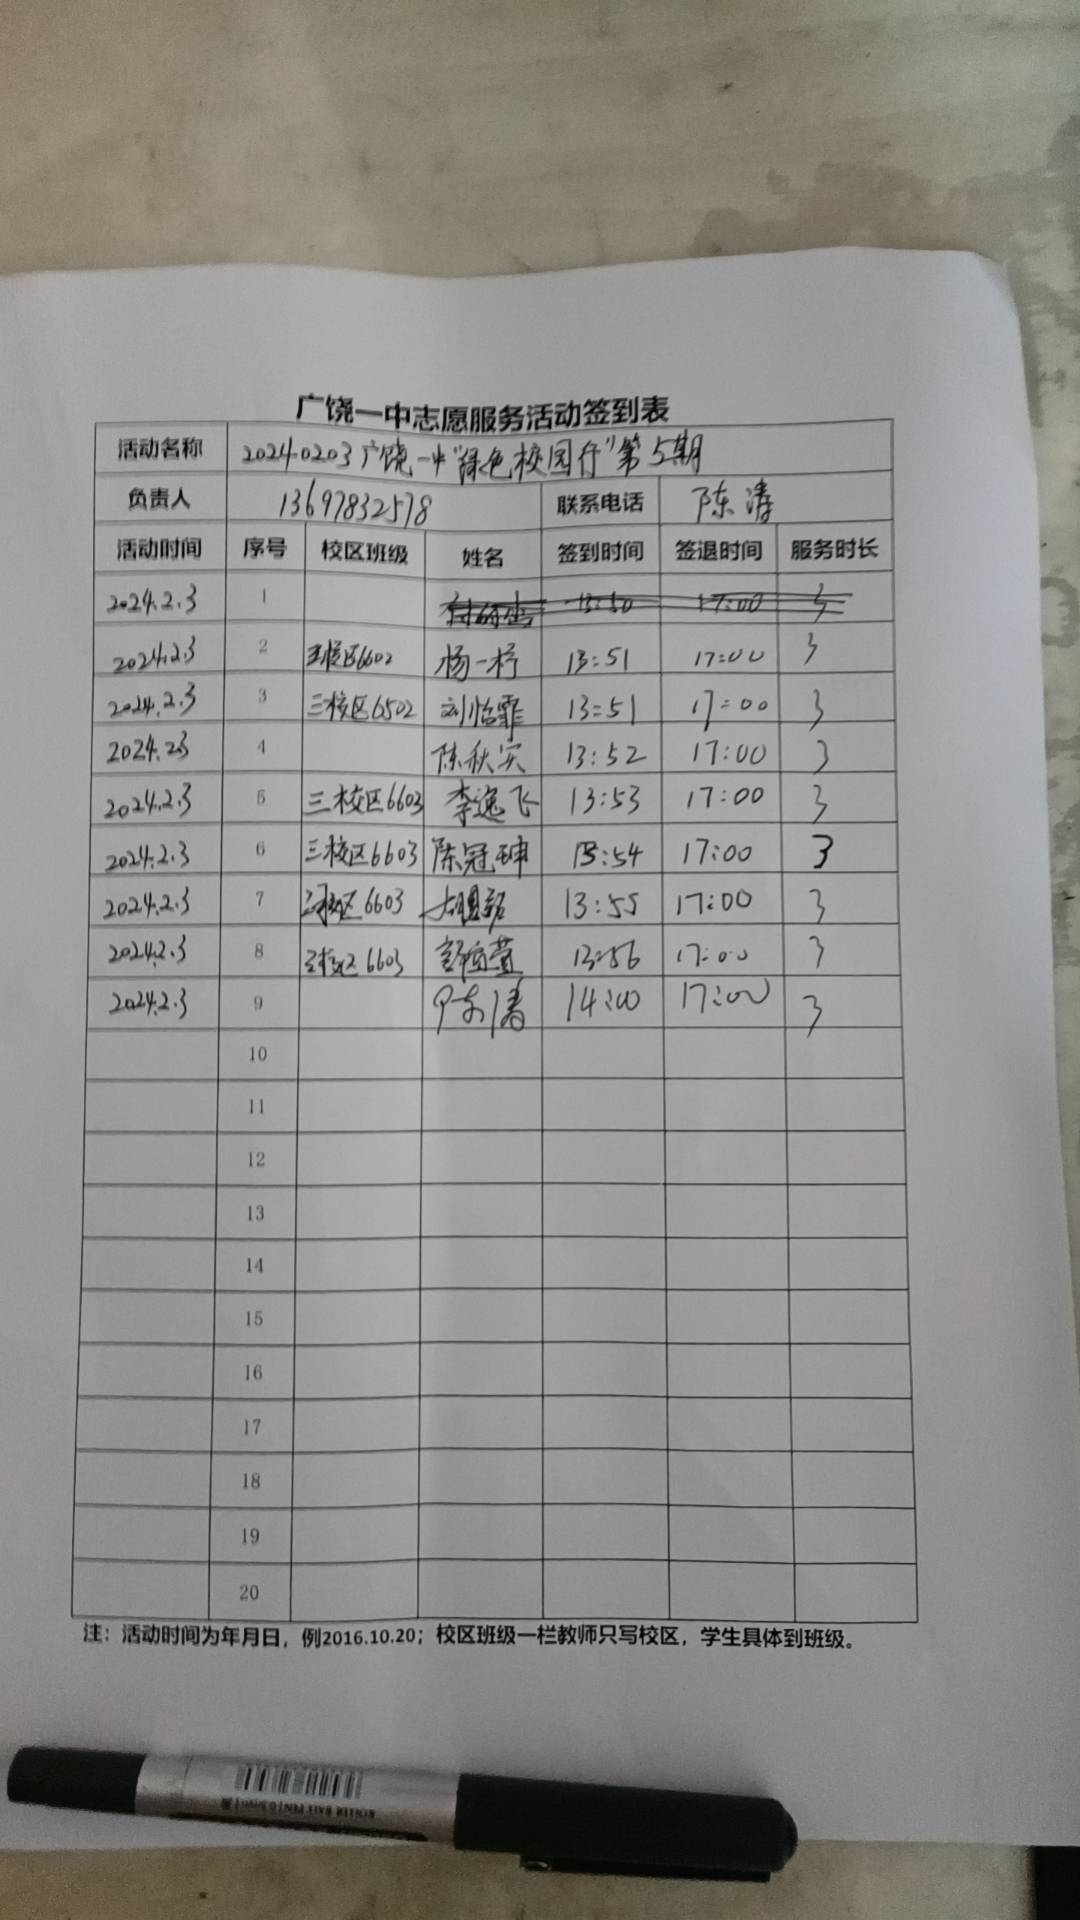 广饶一中志愿服务活动签到表
活动名称 20240203广饶一中"绿色校园行"第5期
负责人 13697832578 联系电话 陈涛
活动时间 序号 校区班级 姓名 签到时间 签退时间 服务时长
2024.2.3 1 13:50 17:00 3
2024.2.3 2 三校区6602 杨一柠 13:51 17:00 3
2024.2.3 3 三校区6502 刘怡霏 13:51 17:00 3
2024.2.3 4 陈秋实 13:52 17:00 3
2024.2.3 5 三校区6603 李逸飞 13:53 17:00 3
2024.2.3 6 三校区6603 陈冠珅 13:54 17:00 3
2024.2.3 7 三校区6603 13:55 17:00 3
2024.2.3 8 三校区6603 13:56 17:00 3
2024.2.3 9 陈涛 14:00 17:00 3
10
11
12
13
14
15
16
17
18
19
20
注：活动时间为年月日，例2016.10.20；校区班级一栏教师只写校区，学生具体到班级。
ROLLER BALL PEN 0.5mm